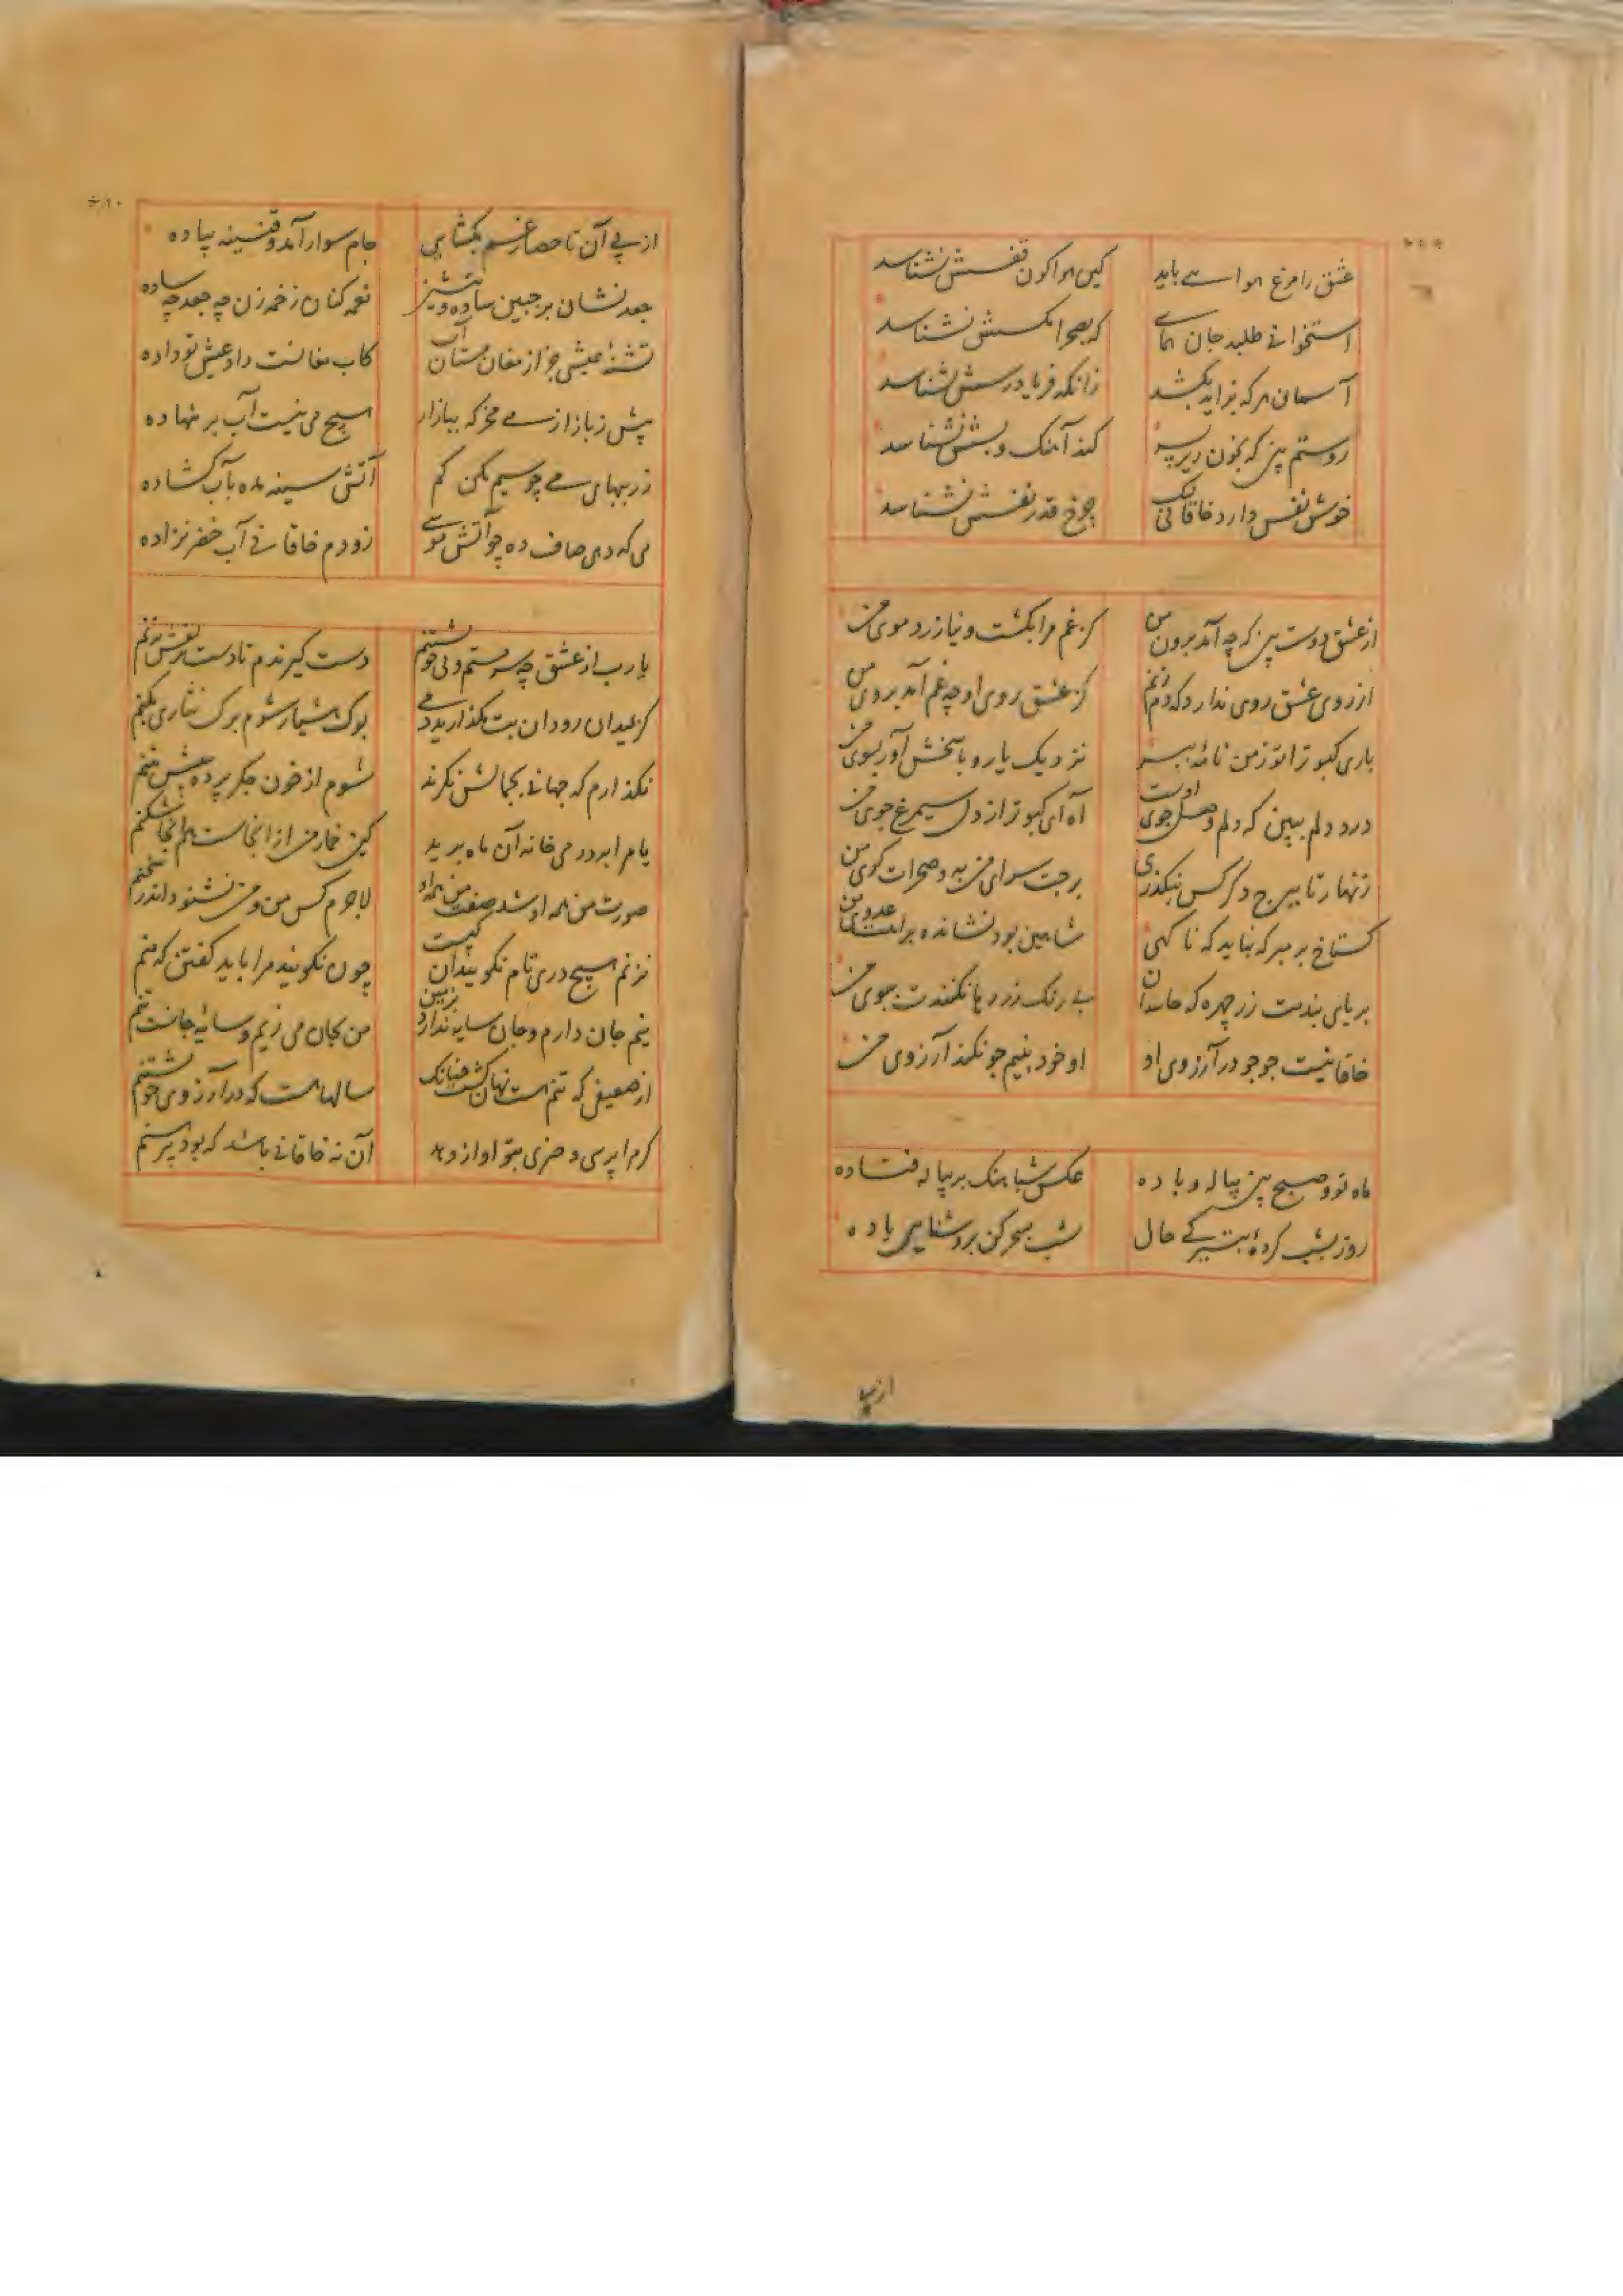 عشق را مرغ هوا سے باید کین هوا کون قفسش نشناسد
استخوانے طلبد جان همای که بصحرا مکسش نشناسد
آسمان هر که بزاید بکشد زانکه فریادرسش نشناسد
رستم بین که بخون ریز پسر کند آهنک و پسش نشناسد
خوش نفس دارد خاقانی لیک چرخ قدر نفسش نشناسد
از عشق دوست بین که چه آمد بروی من کز غم مرا بکشت و نیازرد موی من
از روی عشق روی ندارد که دم زنم کز عشق روی او چه غم آمد بروی من
باری کبوترا تو ز من نامه ببر نزدیک یار و پاسخش آور بسوی من
درد دلم ببین که دلم وصل جوی اوست آه ای کبوتر از دل سیمرغ جوی من
زنهار تا ببرج دکر کس بنکذری برجت سرای من به و صحرات کوی من
کستاخ بر مپر که نباید که ناکهی شاهین بود نشانده براهت عدوی من
بر پای بندمت زر چهره که حاسدان بے رنک زر رها نکنندت بجوی من
خاقانیست جوجو در آرزوی او او خود بنیم جو نکند آرزوی من
ماه نو و صبح بین پیاله و باده عکس شباهنک بر پیاله فتاده
روز بشب کردهٔ بتیرکے حال شب بسحر کن بروشنایی باده
از پی
از پی آن تا حصار غم بکشایی جام سوار آمد و قنینه پیاده
جعد نشان بر جبین ساده و بنشین نغمه کنان زخمه زن چه جعد چه ساده
تشنهٔ عیشی جز از مغان مستان آب کاب مغانست داد عیش تو داده
پیش ز بازار سے مخر که ببازار هیچ می نیست آب بر ننهاده
زر ببهای مے چو سیم مکن کم آتش سینه مده بآب کشاده
می که دهی صاف ده چو آتش موسے زو دم خاقانے آب خضر نزاده
یا رب از عشق چه سرمستم و بی خویشتنم دست کیرندم تا دست بزلفش نزنم
کر بمیدان رود آن بت مکذارید دمے بوک هشیار شوم برک نثاری بکنم
نکذارم که جهانے بجمالش نکرند شوم از خون جکر پرده بپیش تنم
یا مرا بر در میخانه آن ماه برید کین خمار من از انجاست هم انجا شکنم
صورت من همه او شد صفت من همه او لاجرم کس من و من نشنود اندر سخنم
نزنم هیچ دری تام نکویند آن کیست چون نکویند مرا باید کفتن که منم
نیم جان دارم و جان سایه ندارد بزمین من بجان می زیم و سایهٔ جانست تنم
از ضعیفی که تنم هست نهان کشت چنانک سالهاست که در آرزوی خویشتنم
کر مرا پرسی و چیزی بتو آواز دهد آن نه خاقانے باشد که بود پیرهنم